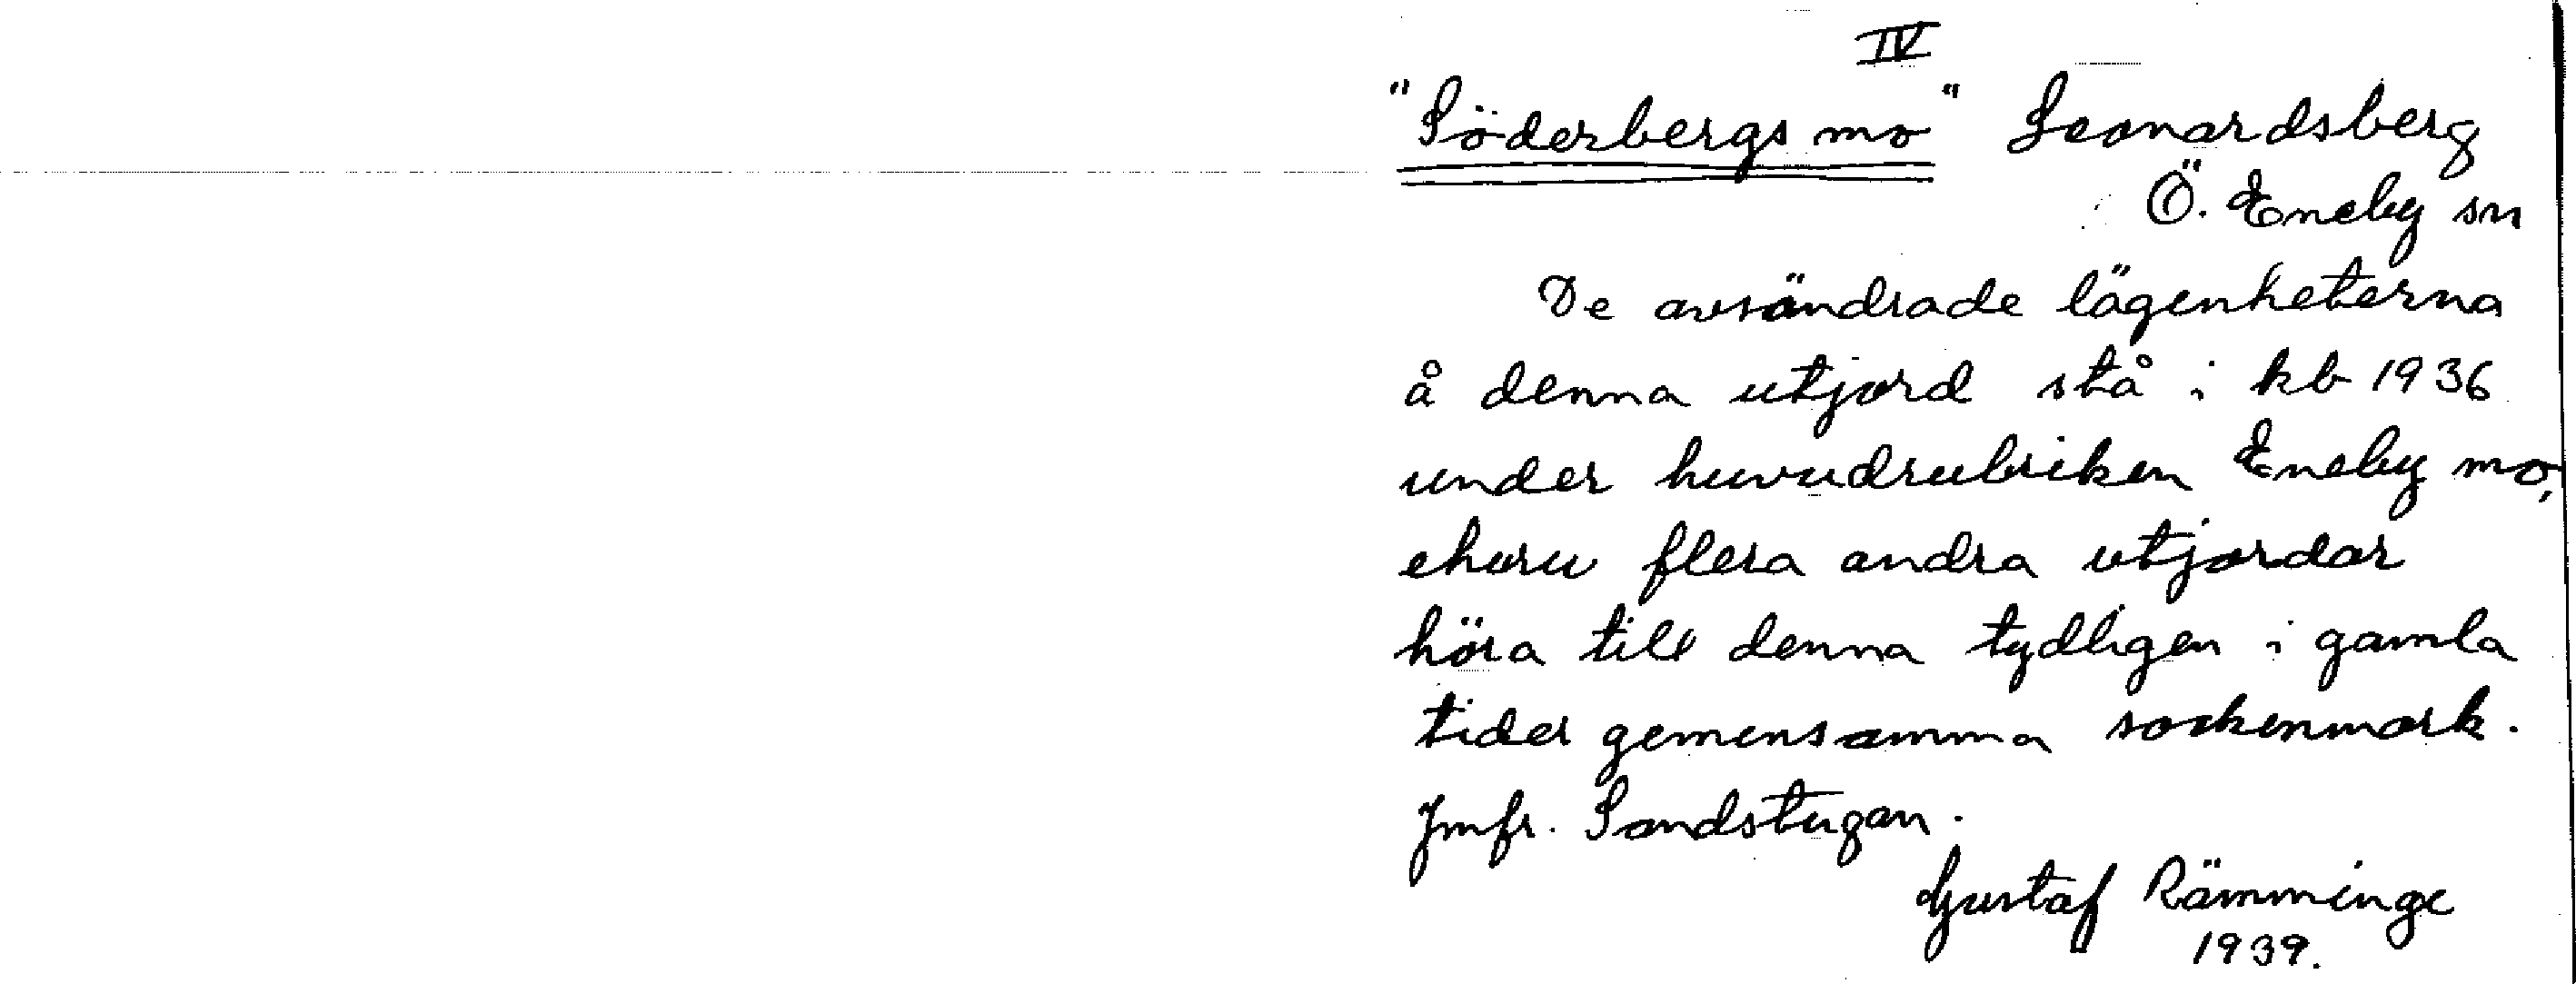 IV
"Söderbergs mo" Leonardsberg
Ö. Eneby sn
De avsöndrade lägenheterna
å denna utjord stå i kb 1936
under huvudrubriken Eneby mo,
ehuru flera andra utjordar
höra till denna tydligen i gamla
tider gemensamma sockenmark.
Jmfr. Sandstugan.
Gustaf Rämminge
1939.